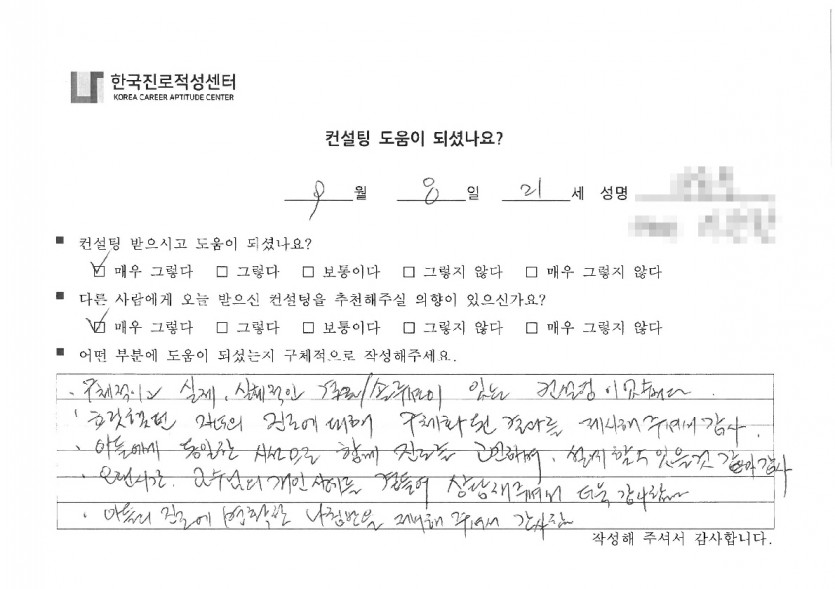 한국진로적성센터
KOREA CAREER APTITUDE CENTER
컨설팅 도움이 되셨나요?
9 월 8 일 21 세 성명
■ 컨설팅 받으시고 도움이 되셨나요?
☑ 매우 그렇다 □ 그렇다 □ 보통이다 □ 그렇지 않다 □ 매우 그렇지 않다
■ 다른 사람에게 오늘 받으신 컨설팅을 추천해주실 의향이 있으신가요?
☑ 매우 그렇다 □ 그렇다 □ 보통이다 □ 그렇지 않다 □ 매우 그렇지 않다
■ 어떤 부분에 도움이 되셨는지 구체적으로 작성해주세요.
· 구체적이고 실제, 실체적인 있는 컨설팅이었습니다
· 진로에 대하여 구체화된 결과를 제시해 주셔서 감사.
· 아들에게 동일한 시선으로 함께 진로를 고민하며, 설계할 수 있을것 같아 감사
· 오랜시간, 교수님의 개인 사례를 곁들여 상담해주셔서 더욱 감사함
· 아들의 진로에 명확한 나침반을 제시해 주셔서 감사함
작성해 주셔서 감사합니다.